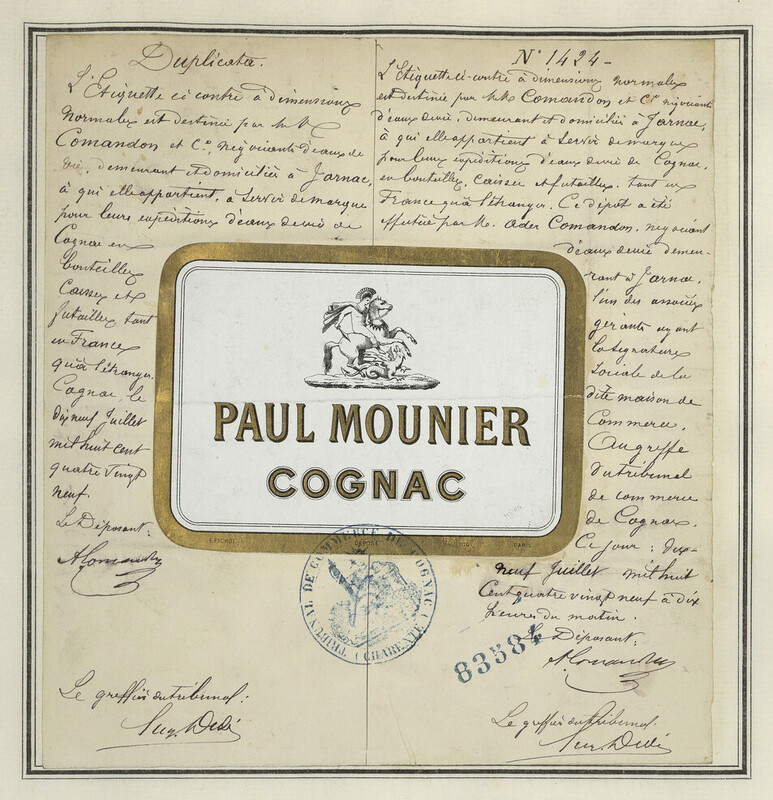 Duplicata.
L'Etiquette ci contre à dimensions
normales est destinée par MM
Comandon et Co, négociants d'eaux de
vie, demeurant et domiciliés à Jarnac,
à qui elle appartient, à servir de marque
pour leurs expéditions d'eaux de vie de
Cognac en
bouteilles
Caisses et
futailles tant
en France
qu'à l'étranger.
Cognac, le
dix neuf Juillet
mil huit cent
quatre vingt
neuf.
Le Déposant:
Le greffier du tribunal:
N° 1424-
L'Etiquette ci-contre à dimensions normales
est destinée par MM. Comandon et Ce négociants
d'eaux de vie, demeurant et domiciliés à Jarnac,
à qui elle appartient à servir de marque
pour leurs expéditions d'eaux de vie de Cognac,
en bouteilles, caisses et futailles, tant en
France qu'à l'étranger. Ce dépôt a été
effectué par M. Ader Comandon, négociant
d'eaux de vie demeu-
rant à Jarnac,
l'un des associés
gérants ayant
la signature
sociale de la
dite maison de
Commerce,
Au greffe
du tribunal
de commerce
de Cognac.
Ce jour: dix-
neuf Juillet mil huit
Cent quatre vingt neuf à dix
heures du matin.
Le Déposant:
Le greffier du tribunal.
PAUL MOUNIER
COGNAC
DÉPOSÉ
PARIS
TRIBUNAL DE COMMERCE DE COGNAC (CHARENTE)
83584